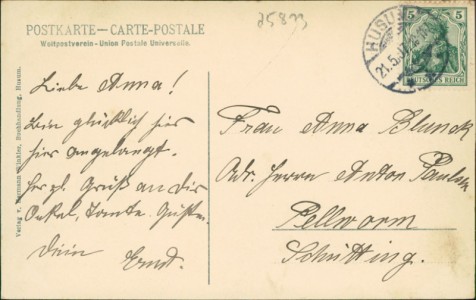 25833
POSTKARTE — CARTE-POSTALE
Weltpostverein - Union Postale Universelle.
HUSU
21.5.
5 5
DEUTSCHES REICH
Liebe Anna!
Bin glücklich hier
hier angelangt.
Herzl. Gruß an Dich
Onkel, Tante.
Dein Ernst.
Frau Anna Blunck
Adr. Herrn Anton Paulsen
Pellworm
Schütting.
Verlag v. Hermann Winkler, Buchhandlung, Husum.